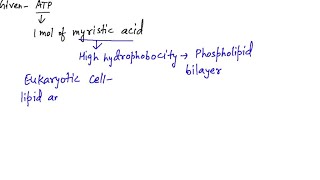 Given- ATP
1 mol of myristic acid
High hydrophobocity → Phospholipid
bilayer
Eukaryotic cell-
lipid ar